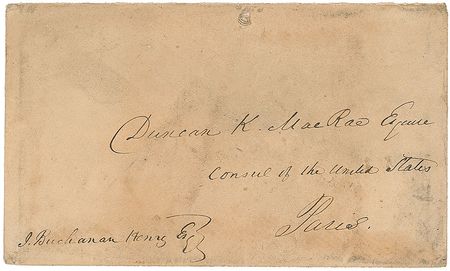 Duncan K. MacRae Esquire
Consul of the United States
Paris.
J. Buchanan Henry Esq